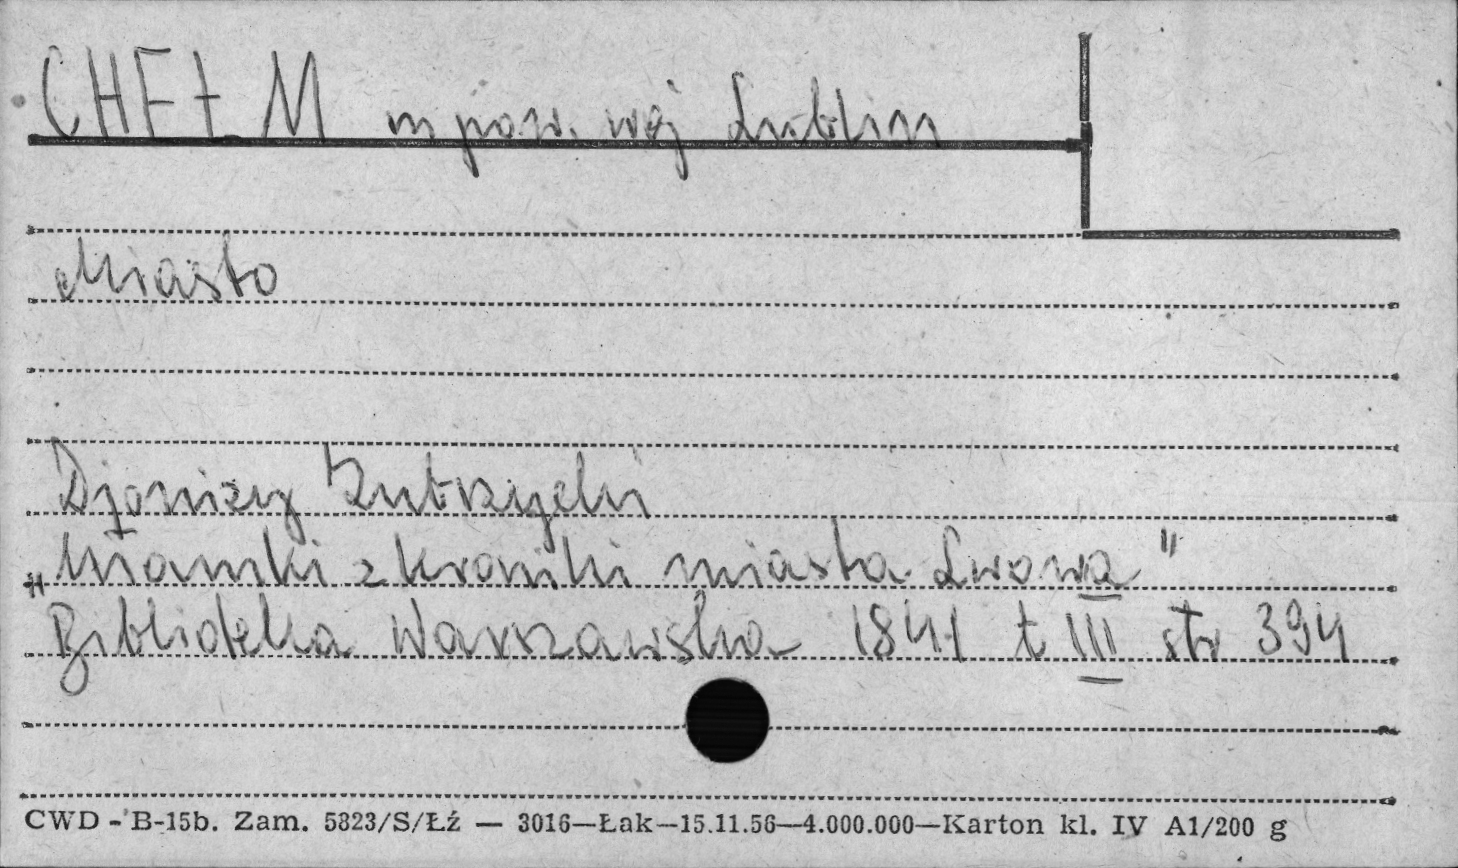 CHEŁM m pow. woj Lublin
Miasto
Djonizy Zubrzycki
"Ułamki z kroniki miasta Lwowa"
Biblioteka Warszawska 1841 t III str 394
CWD - B-15b. Zam. 5823/S/Łź — 3016—Łak—15.11.56—4.000.000—Karton kl. IV A1/200 g